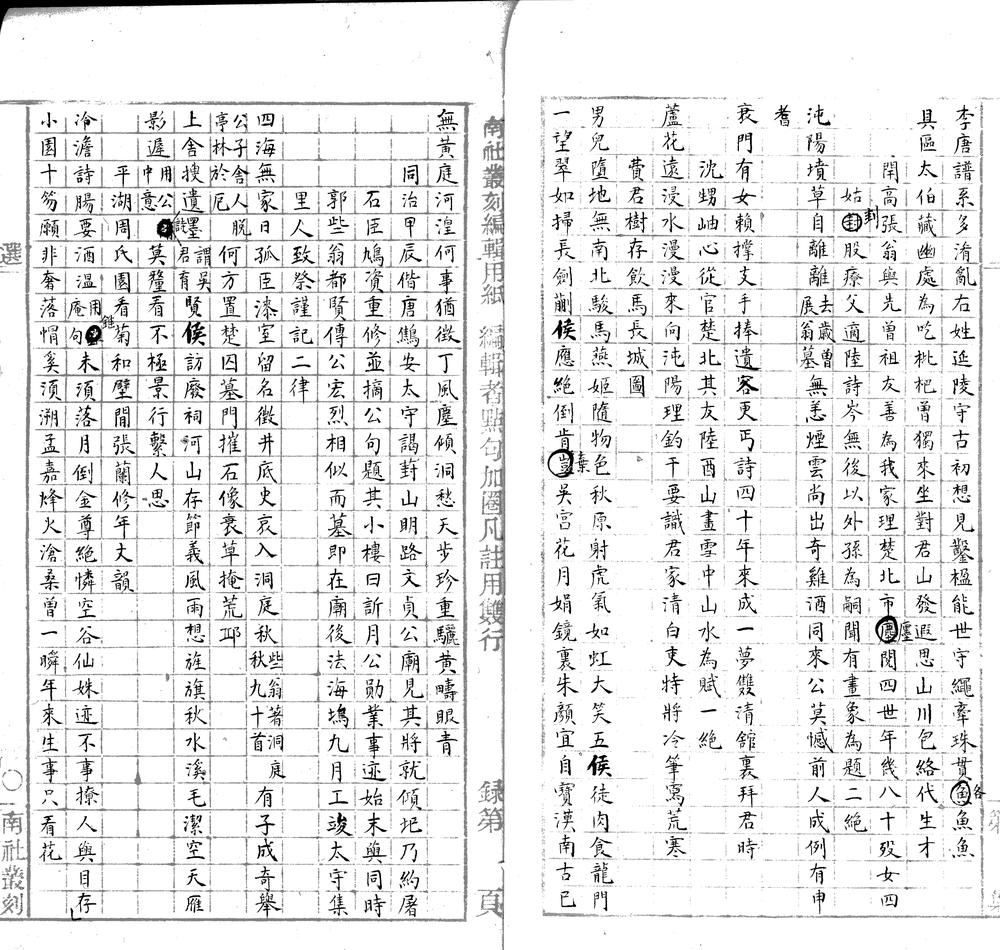 李唐譜系多淆亂右姓延陵守古初想見鑿楹能世守繩牽珠貫各魚魚
具區太伯藏幽處為吃枇杷曾獨來坐對君山發遐思山川包絡代生才
閑高張翁與先曾祖友善為我家理楚北市廛閱四世年幾八十歿女四
姑封股療父適陸詩岑無後以外孫為嗣聞有畫象為題二絕
沌陽墳草自離離去歲曾展翁墓無恙煙雲尚出奇雞酒同來公莫憾前人成例有申
耆
衰門有女賴撐支手捧遺容更丐詩四十年來成一夢雙清館裏拜君時
沈甥岫心從官楚北其友陸酉山畫雪中山水為賦一絕
蘆花遠浸水漫漫來向沌陽理釣干要識君家清白吏特將冷筆寫荒寒
費君樹存飲馬長城圖
男兒隨地無南北駿馬燕姬隨物色秋原射虎氣如虹大笑五侯徒肉食龍門
一望翠如掃長劍蒯侯應絕倒肯棄吳宮花月娟鏡裏朱顏宜自寶漢南古已
南社叢刻編輯用紙 編輯者點句加圈凡註用雙行 錄第 頁
無黃庭河湟何事猶徵丁風塵傾洞愁天步珍重驪黃疇眼青
同治甲辰偕唐鷦安太守謁葑山明路文貞公廟見其將就傾圯乃約屠
石臣鳩資重修並摘公句題其小樓曰訢月公勛業事迹始末與同時
郭些翁都賢傳公宏烈相似而墓即在廟後法海塢九月工竣太守集
里人致祭謹記二律
四海無家日孤臣漆室留名徵井底史哀入洞庭秋些翁著洞庭秋九十首有子成奇舉
公子舍人脫亭林於厄何方置楚囚墓門摧石像衰草掩荒邱
上舍搜遺墨謂吳君有賢侯訪廢祠河山存節義風雨想旌旗秋水溪毛潔空天雁
影遲中用公詩意莫釐看不極景行繫人思
平湖周氏園看菊和壁間張蘭修年丈韻
冷澹詩腸要酒溫用雒庵句未須落月倒金尊絕憐空谷仙姝迹不事撩人與目存
小園十笏願非奢落帽奚須溯孟嘉烽火滄桑曾一瞬年來生事只看花
選 〇 南社叢刻